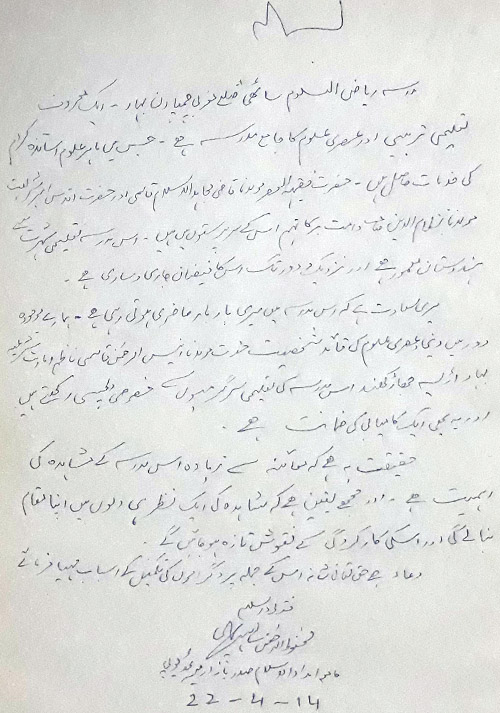 مدرسہ ریاض العلوم ساٹھی ضلع مغربی چمپارن بہار - ایک معروف
تعلیمی تربیتی اور عصری علوم کا جامع مدرسہ ہے - جس میں ماہر علوم اساتذہ کرام
کی خدمات حاصل ہیں - حضرت فقیہ العصر مولانا قاضی مجاہد الاسلام قاسمی اور حضرت اقدس امیر شریعت
مولانا نظام الدین صاحب دامت برکاتہم اس کے سرپرستوں میں ہیں - اس مدرسہ تعلیمی شہرت سے
ہندوستان معمور ہے اور نزدیک و دور تک اس کا فیضان جاری و ساری ہے -
میری سعادت ہے کہ اس مدرسہ میں میری بار بار حاضری ہوتی رہی ہے - ہمارے موجودہ
دور میں دینی و عصری علوم کی قائد شخصیت حضرت مولانا انیس الرحمٰن قاسمی ناظم امارت شرعیہ
بہار اڑیسہ جھارکھنڈ اس مدرسہ کی تعلیمی سرگرمیوں سے خصوصی دلچسپی رکھتے ہیں
اور یہ بھی ایک کامیابی کی ضمانت ہے -
حقیقت یہ ہے کہ معائنہ سے زیادہ اس مدرسہ کے مشاہدہ کی
اہمیت ہے - اور مجھے یقین ہے کہ مشاہدہ کی ایک نظر ہی دلوں میں اپنا مقام
بنالے گی اور اسکی کارکردگی کے نقوش تازہ ہو جائیں گے -
دعاء ہے حق تعالیٰ شانہ اس کے جملہ پروگراموں کی تکمیل کے اسباب مہیا فرمائے
فقط والسلام
محفوظ الرحمٰن
22-4-14